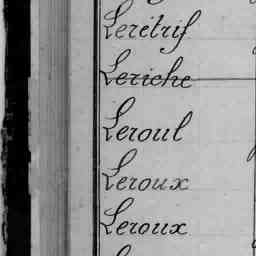 Lerétrif
Leriche
Leroul
Leroux
Leroux